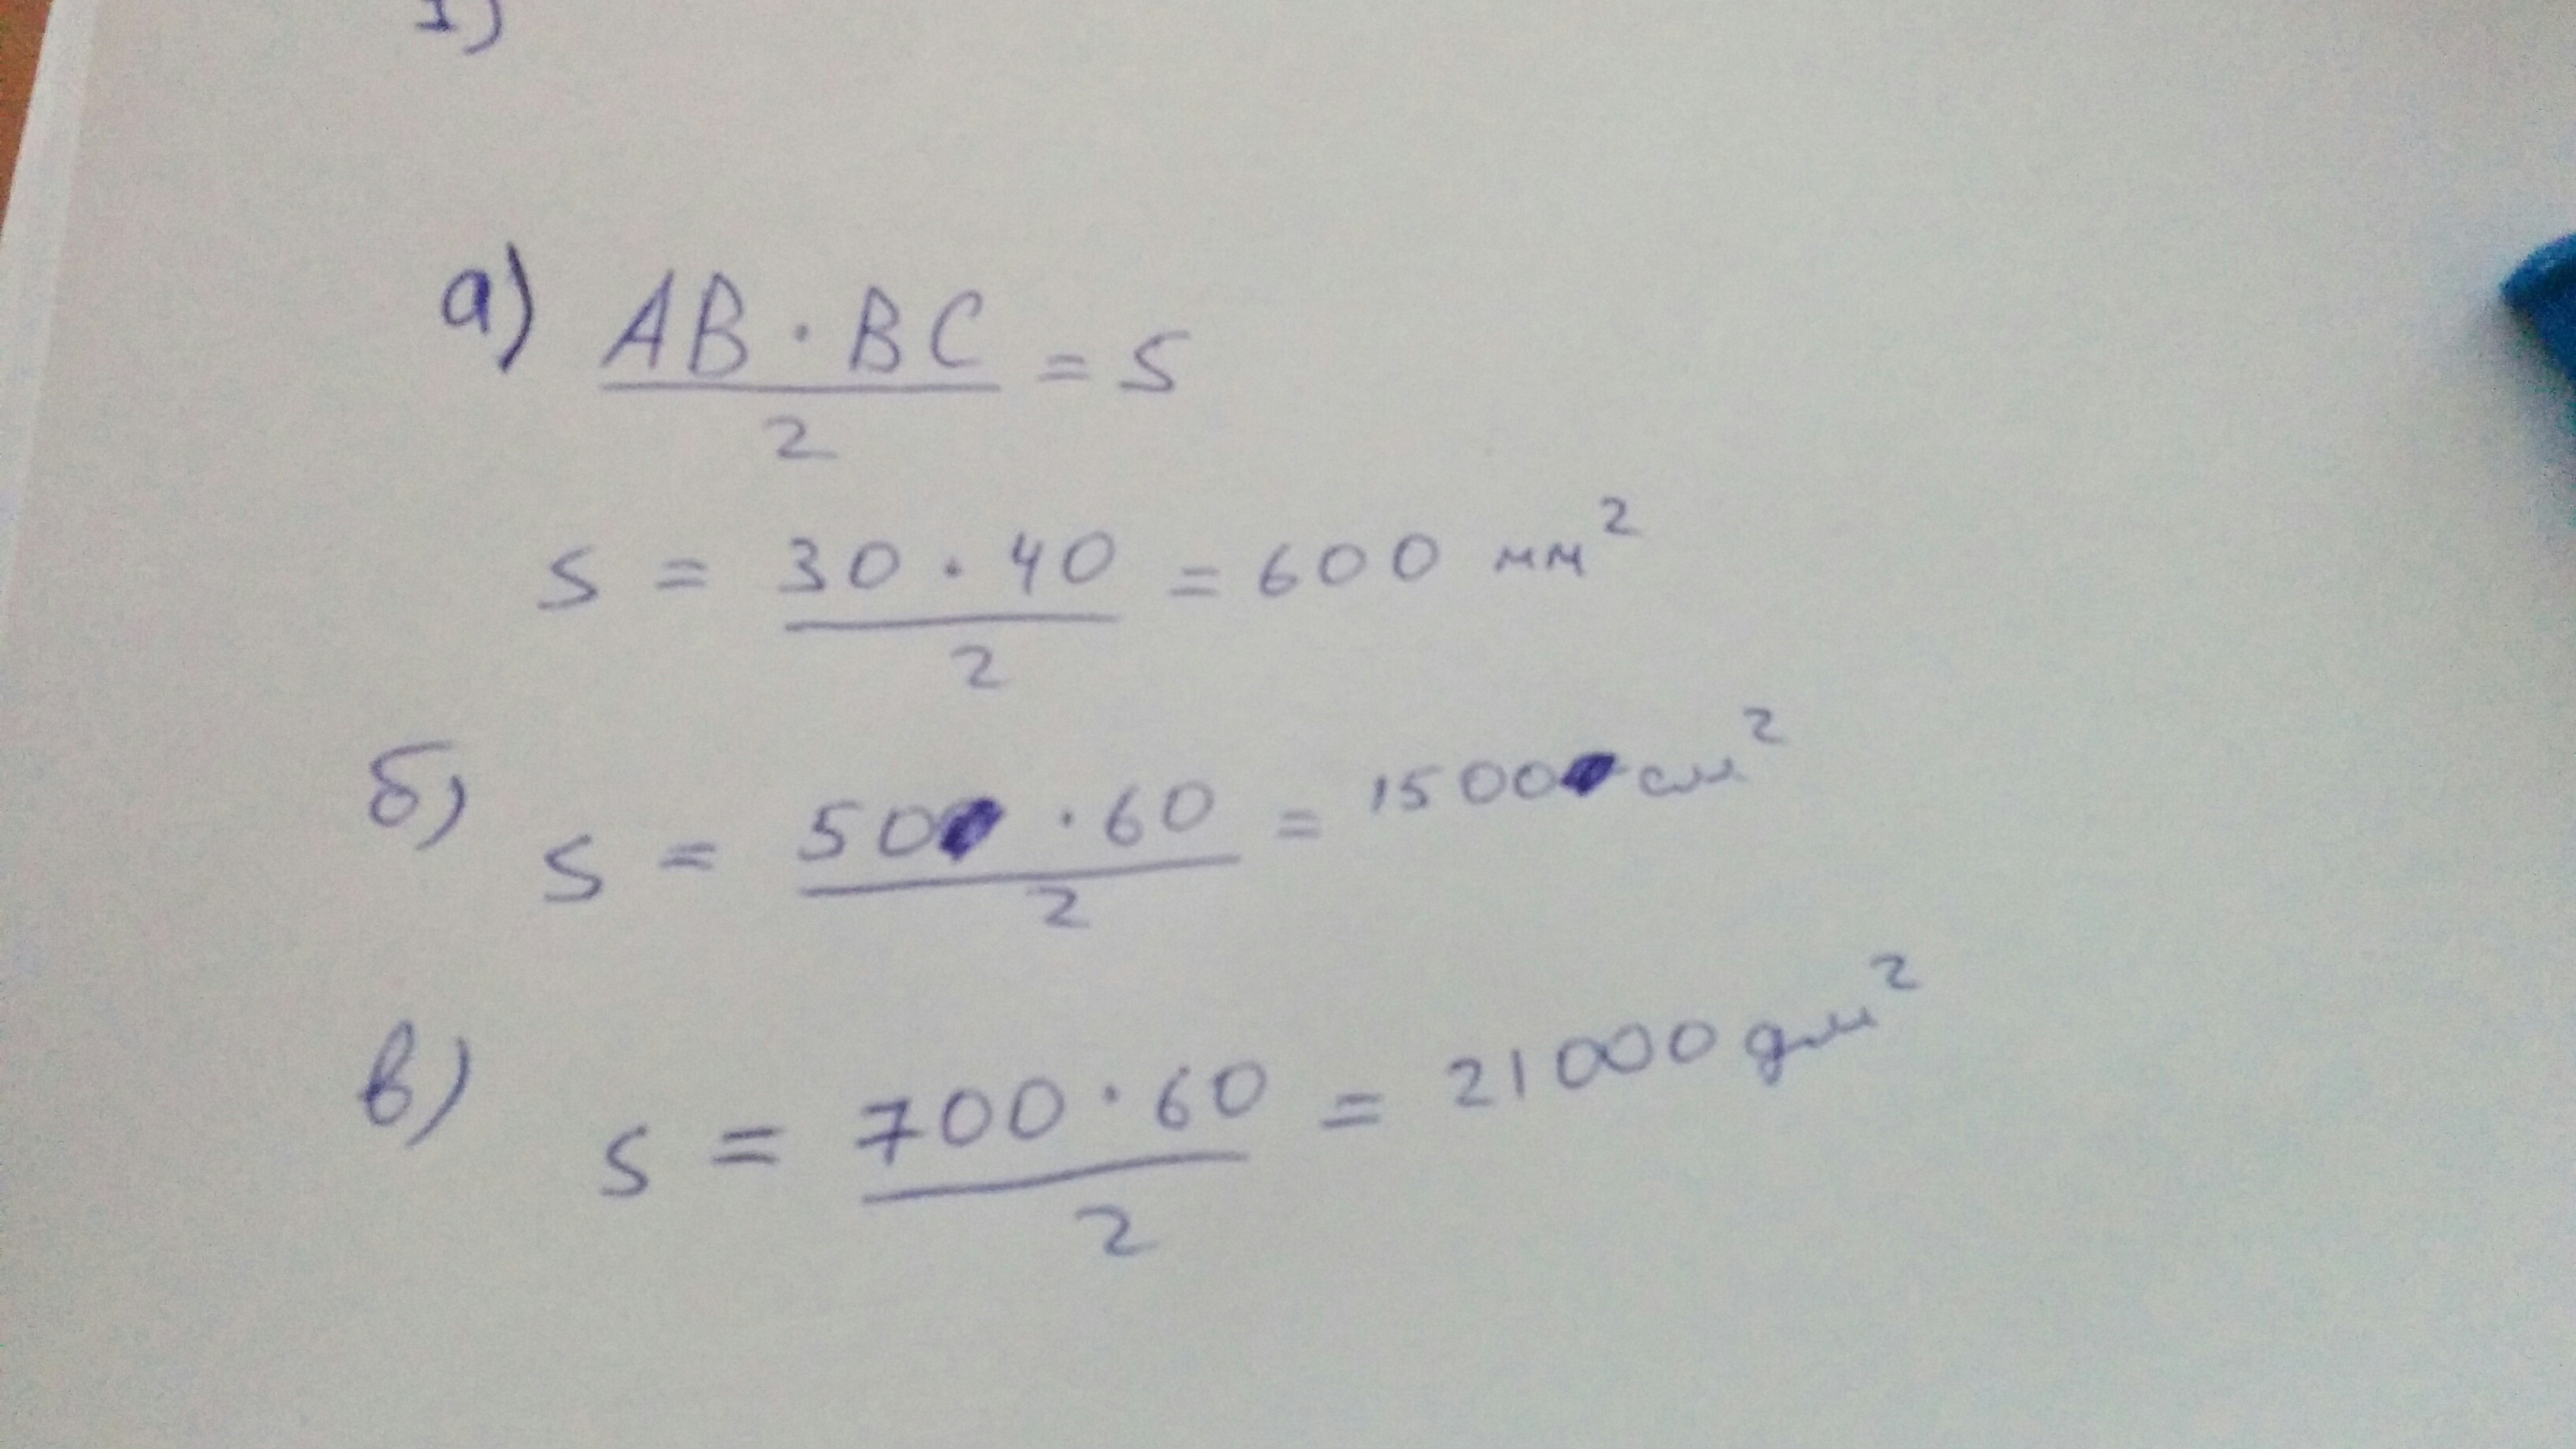 1)
а) AB · BC / 2 = S
S = 30 · 40 / 2 = 600 мм²
б) S = 50 · 60 / 2 = 1500 см²
в) S = 700 · 60 / 2 = 21000 дм²